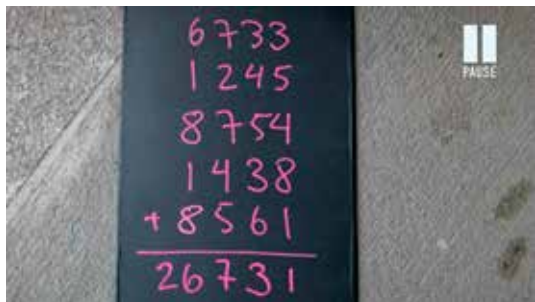 6733
1245
8754
1438
+8561
26731
PAUSE